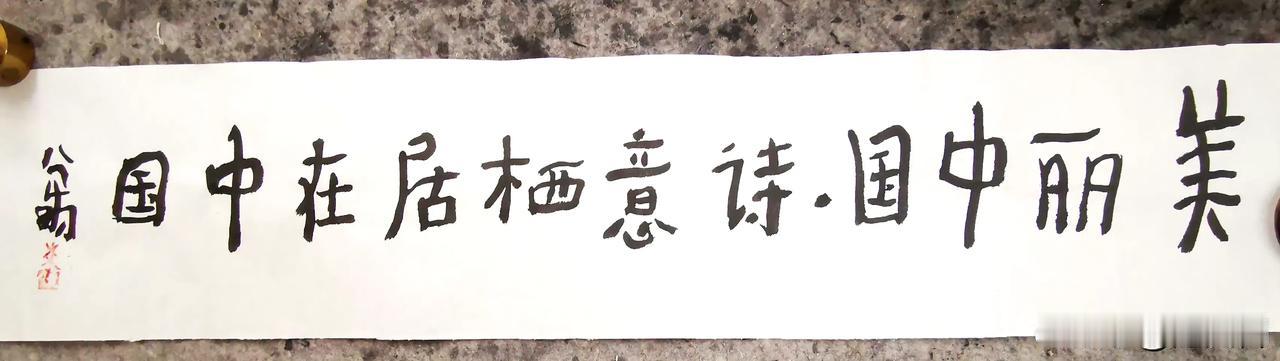 美丽中国·诗意栖居在中国
八翁